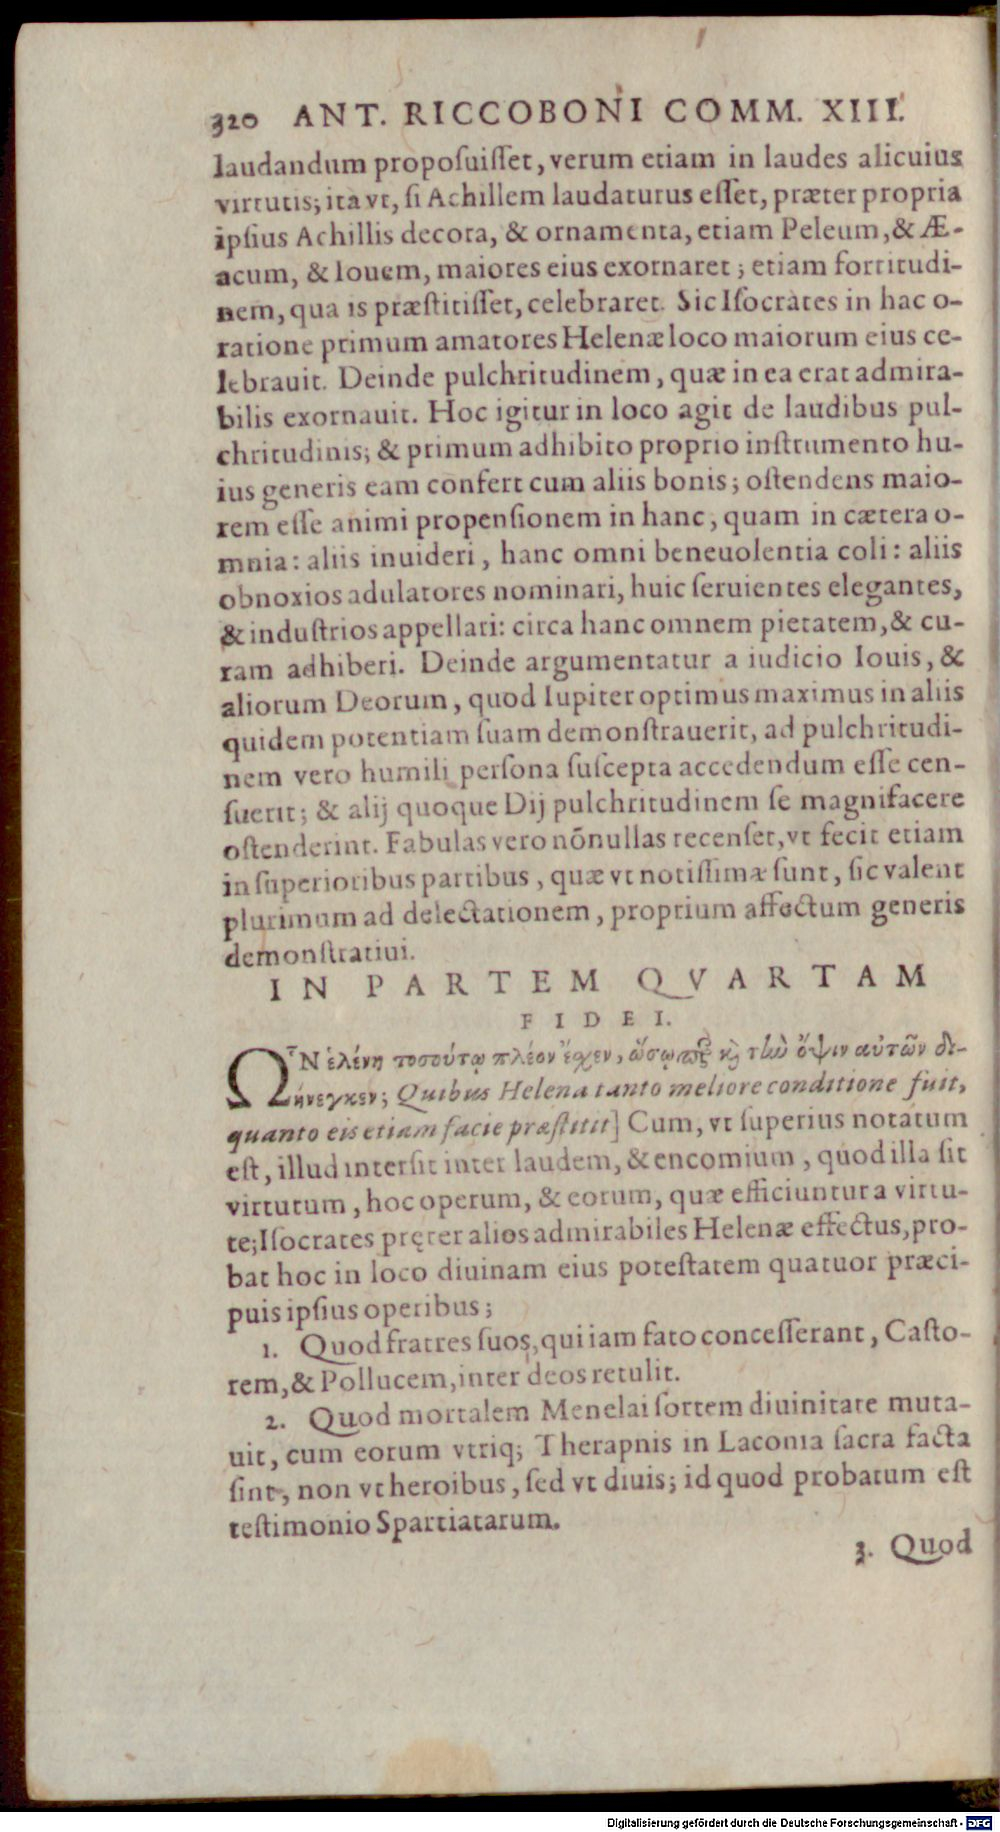 320 ANT. RICCOBONI COMM. XIII.
laudandum proposuisset, verum etiam in laudes alicuius
virtutis; ita vt, si Achillem laudaturus esset, præter propria
ipsius Achillis decora, & ornamenta, etiam Peleum, & Æ-
acum, & Iouem, maiores eius exornaret; etiam fortitudi-
nem, qua is præstitisset, celebraret. Sic Isocrates in hac o-
ratione primum amatores Helenæ loco maiorum eius ce-
lebrauit. Deinde pulchritudinem, quæ in ea erat admira-
bilis exornauit. Hoc igitur in loco agit de laudibus pul-
chritudinis; & primum adhibito proprio instrumento hu-
ius generis eam confert cum aliis bonis; ostendens maio-
rem esse animi propensionem in hanc, quam in cætera o-
mnia: aliis inuideri, hanc omni beneuolentia coli: aliis
obnoxios adulatores nominari, huic seruientes elegantes,
& industrios appellari: circa hanc omnem pietatem, & cu-
ram adhiberi. Deinde argumentatur a iudicio Iouis, &
aliorum Deorum, quod Iupiter optimus maximus in aliis
quidem potentiam suam demonstrauerit, ad pulchritudi-
nem vero humili persona suscepta accedendum esse cen-
suerit; & alij quoque Dij pulchritudinem se magnifacere
ostenderint. Fabulas vero nõnullas recenset, vt fecit etiam
in superioribus partibus, quæ vt notissimæ sunt, sic valent
plurimum ad delectationem, proprium affectum generis
demonstratiui.
IN PARTEM QVARTAM
FIDEI.
Ὧν ἑλένη τοσούτῳ πλέον ἔχεν, ὥσῳπερ καὶ τὴν ὄψιν αὐτῶν δι-
ήνεγκεν; Quibus Helena tanto meliore conditione fuit,
quanto eis etiam facie præstitit] Cum, vt superius notatum
est, illud intersit inter laudem, & encomium, quod illa sit
virtutum, hoc operum, & eorum, quæ efficiuntur a virtu-
te; Isocrates pręter alios admirabiles Helenæ effectus, pro-
bat hoc in loco diuinam eius potestatem quatuor præci-
puis ipsius operibus;
1. Quod fratres suos, qui iam fato concesserant, Casto-
rem, & Pollucem, inter deos retulit.
2. Quod mortalem Menelai sortem diuinitate muta-
uit, cum eorum vtriq; Therapnis in Laconia sacra facta
sint, non vt heroibus, sed vt diuis; id quod probatum est
testimonio Spartiatarum.
3. Quod
Digitalisierung gefördert durch die Deutsche Forschungsgemeinschaft - DFG